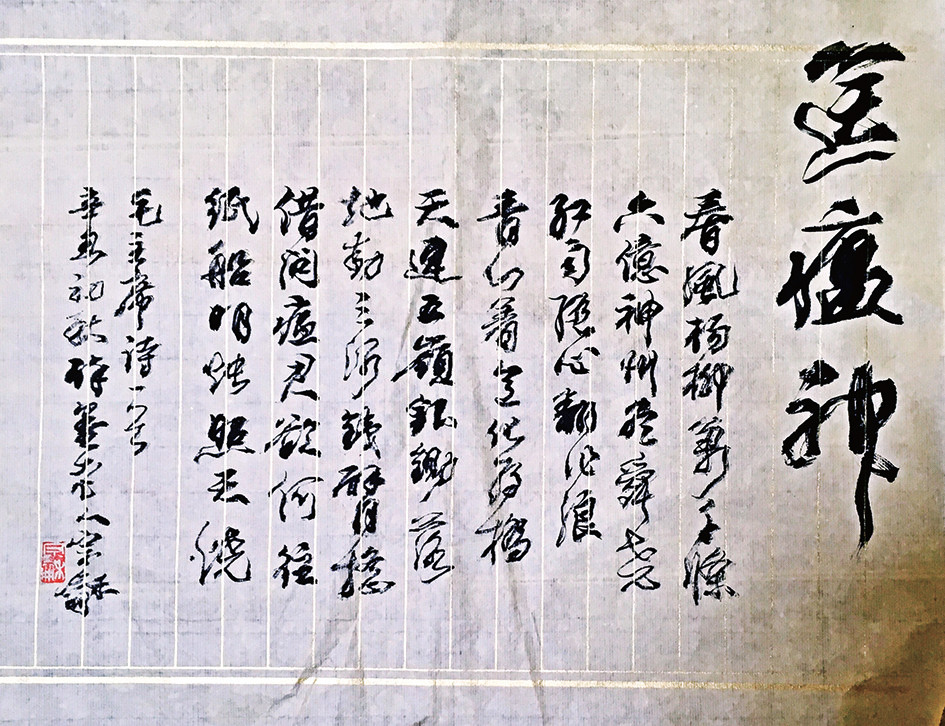 送瘟神
春風楊柳萬千條
六億神州盡舜堯
紅雨隨心翻作浪
青山着意化為橋
天連五嶺銀鋤落
地動三河鐵臂搖
借問瘟君欲何往
紙船明燭照天燒
毛主席詩一首
辛丑初秋